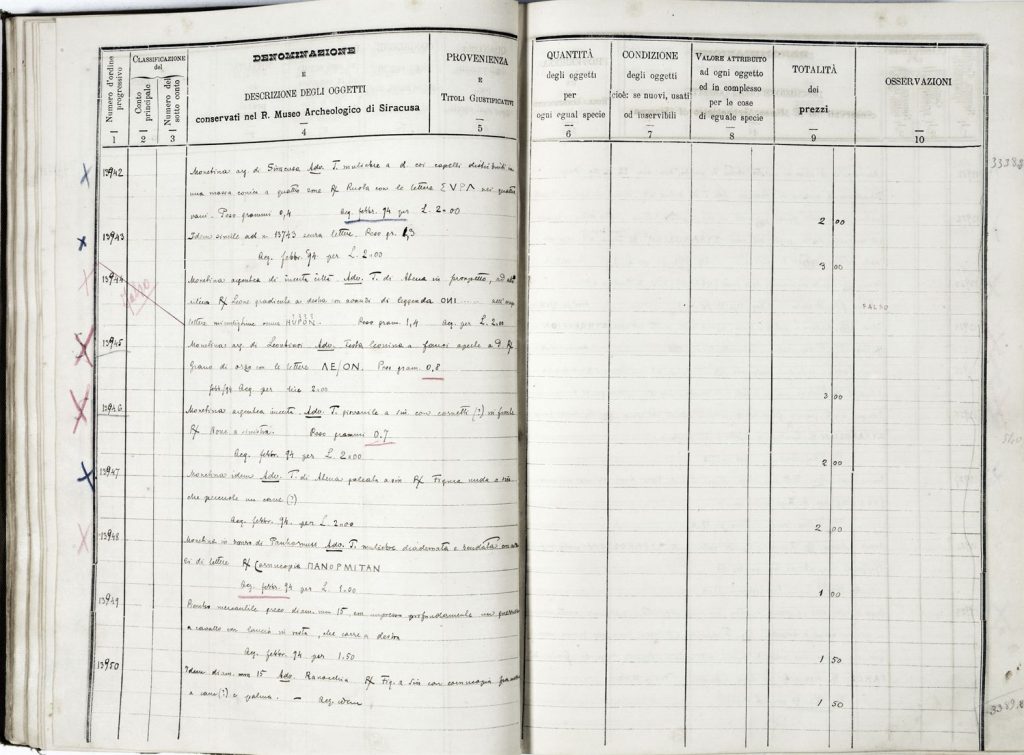 Numero d'ordine progressivo
CLASSIFICAZIONE del
Conto principale
Numero del sotto conto
DENOMINAZIONE
E
DESCRIZIONE DEGLI OGGETTI
conservati nel R. Museo Archeologico di Siracusa
PROVENIENZA
E
TITOLI GIUSTIFICATIVI
1 2 3 4 5
13942 Monetina arg. di Siracusa Adv. T. muliebre a d. coi capelli
una massa conica a quattro zone ℞ Ruota con le lettere ΣVPA nei quattro
vani. Peso grammi 0,4 Acq. febbr. 94 per L. 2.00
13943 Idem simile ad n 13743 senza lettere. Peso gr. 1,3
Acq. febbr. 94 per L. 2.00
13944 Monetina argentea di incerta città. Adv. T. di Atena in prospetto, ad
℞ Leone gradiente a destra con avanzi di leggenda ONI .....
lettere HUPON. Peso gram. 1,4 Acq. per L. 2.00
Falso
13945 Monetina arg. di Leontinoi Adv. Testa leonina a fauci aperte a d ℞
Grano di orzo con le lettere ΛE/ON. Peso gram. 0,8
febb/94 Acq. per lire 2.00
13946 Monetina argentea incerta. Adv. T. giovanile a sin. con cornetti (?) in fronte
℞ a sinistra. Peso grammi 0.7
Acq. febbr. 94 per L. 2.00
13947 Monetina idem Adv. T. di Atena galeata a sin ℞ Figura nuda a sin
che percuote un cane (?)
Acq. febbr. 94. per L. 2.00
13948 Monetina in bronzo di Panhormus Adv. T. muliebre diademata e velata
di lettere ℞ Cornucopia ΠANOPMITAN
Acq. febbr. 94 per L. 1.00
13949 Piombo mercantile greco diam. mm 15, con impresso profondamente un
a cavallo con lancia in resta, che corre a destra
Acq. febbr. 94 per 1.50
13950 Idem diam. mm 15 Adv. Ranocchia ℞ Fig. a sin con cornucopia
a cane (?) e palma. — Acq. idem
QUANTITÀ
degli oggetti
per
ogni egual specie
6
CONDIZIONE
degli oggetti
cioè: se nuovi, usati
od inservibili
7
VALORE ATTRIBUITO
ad ogni oggetto
ed in complesso
per le cose
di eguale specie
8
TOTALITÀ
dei
prezzi
9
OSSERVAZIONI
10
2 00
3 00
FALSO
3 00
2 00
2 00
1 00
1 50
1 50